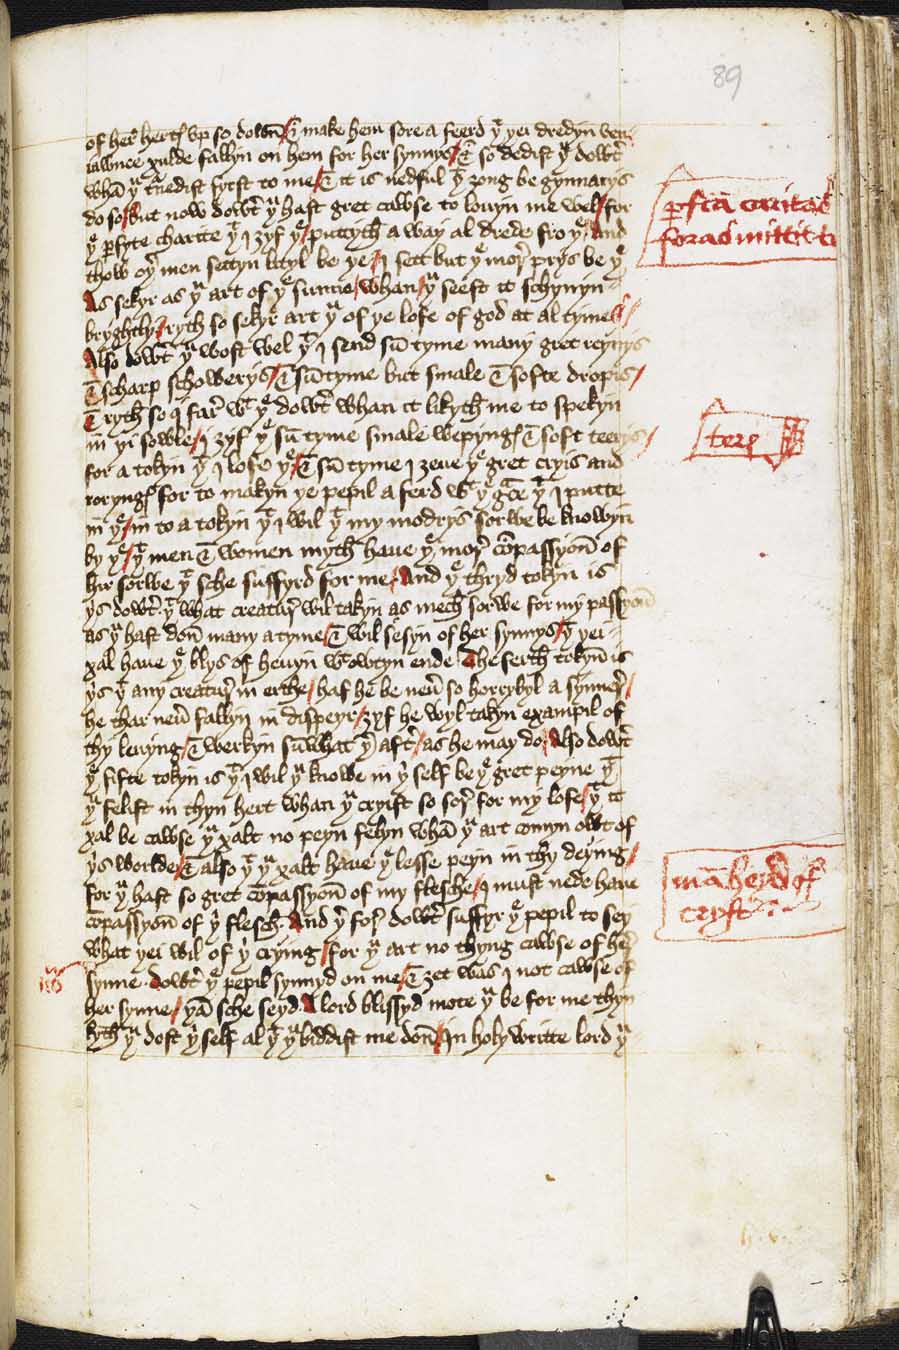 89
of her hertys vp so down / & make hem sore a feerd yt yei dredyn ven
iawnce xulde fallyn on hem for her synnys / & so dedist yu dowtr
whan yu turnedist fyrst to me / & it is nedful yt ȝong be gynnarys
do so / but now dowtr yu hast gret cawse to louyn me wel / for
ye perfyte charite yt I ȝyf ye / puttyth a way al drede fro ye / And
thow oyr men settyn lityl be ye / I sett but ye mor prys be ye
As sekyr as yu art of ye sunne / whan / yu seest it schynyn
bryghtly / ryth so sekyr art yu of ye lofe of god at al tyme /
Also dowtr yu wost wel yt I send sum tyme many gret reynys
& scharp schowerys / & sumtyme but smale & softe dropis /
& ryth so I far wt ye dowtr whan it likyth me to spekyn
in yi sowle / I ȝyf ye sum tyme smale wepyngys & soft teerys /
for a tokyn yt I lofe ye / & sum tyme I ȝeue ye gret cryis and
roryngys for to makyn ye pepil a ferd wt ye grace yt I putte
in ye / in to a tokyn yt I wil yt my modrys sorwe be knowyn
by ye / yt men & women myth haue ye mor compassyon of
hir sorwe yt sche suffyrd for me / And ye thryd tokyn is
ys dowtr yt what creatur wil takyn as mech sorwe for my passyon
as yu hast don many a tyme / & wil sesyn of her synnys / yt yei
xal haue ye blys of heuyn wtowtyn ende / The ferth tokyn is
ys yt any creatur in erthe / haf he be neuer so horrybyl a synner /
he thar neuer fallyn in dispeyr / ȝyf he wyl takyn exampil of
thy leuyng / & werkyn sumwhat yr aftr / as he may do / Also dowtr
ye fifte tokyn is yt I wil yu knowe in yi self be ye gret peyne yt
yu felist in thyn hert whan yu cryist so sor for my lofe / yt it
xal be cawse yu xalt no peyn felyn whan yu art comyn owt of
ys worlde / & also yt yu xalt haue ye lesse peyn in thy deying /
for yu hast so gret compassyon of my flesche / I must nede haue
compassyon of yi flesch. And yr for dowtr suffyr ye pepil to sey
what yei wil of yi crying / for yu art no thyng cawse of her
synne. Dowtr ye pepil synnyd on me / & ȝet was I not cawse of
her synne / yan sche seyd. A lord blissyd mote yu be for me thyn
kyth yu dost yi self al yt yu biddist me don / In holy writte lord yu
perfcta caritas
foras mittit ti
terys
manheyd of
cryst